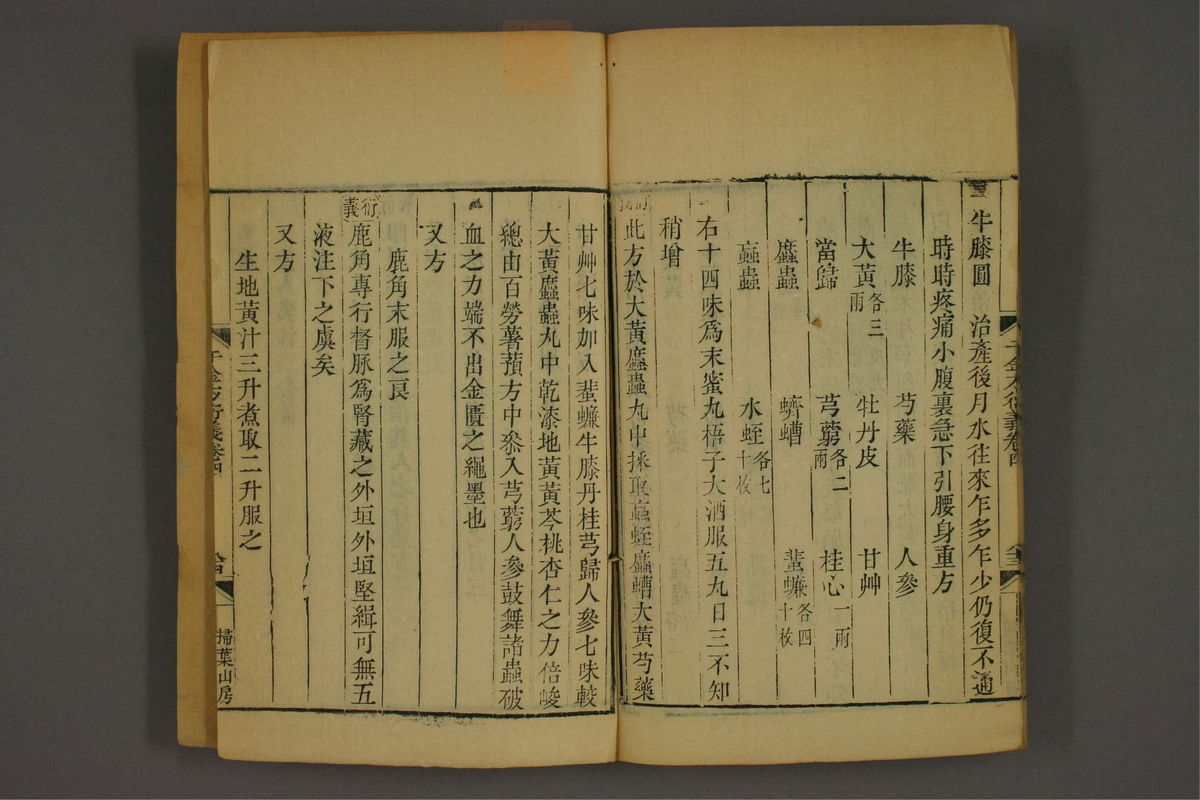 牛膝圓　治產後月水往來乍多乍少仍復不通
時時疼痛小腹裏急下引腰身重方
牛膝　芍藥　人參
大黃各三兩　牡丹皮　甘艸
當歸　芎藭各二兩　桂心一兩
䗪蟲　蠐螬　蜚蠊各四十枚
蝱蟲　水蛭各七十枚
右十四味爲末蜜丸梧子大酒服五丸日三不知
稍增
衍義
此方於大黃䗪蟲丸中採取蝱蛭䗪螬大黃芍藥
千金方衍義卷四
甘艸七味加入蜚蠊牛膝丹桂芎歸人參七味較
大黃䗪蟲丸中乾漆地黃黃芩桃杏仁之力倍峻
總由百勞薯蕷方中叅入芎藭人參鼓舞諸蟲破
血之力端不出金匱之繩墨也
又方
鹿角末服之良
衍義
鹿角專行督脉爲腎藏之外垣外垣堅緝可無五
液注下之虞矣
又方
生地黃汁三升煮取二升服之
千金方衍義卷四
掃葉山房